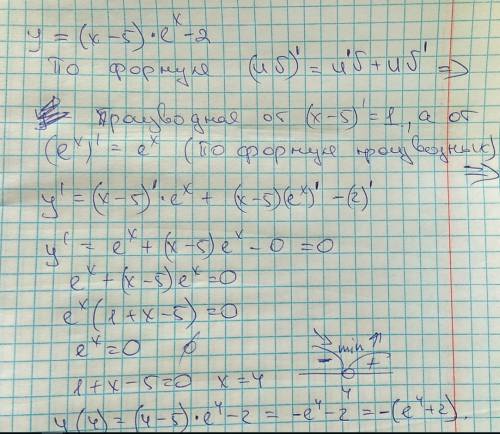 y = (x-5)·e^x-2
По формуле (uб)' = u'б + uб' ⇒
производная от (x-5)' = 1, а от
(e^x)' = e^x (по формуле производных) ⇒
y' = (x-5)'·e^x + (x-5)(e^x)' - (2)'
y' = e^x + (x-5)e^x - 0 = 0
e^x + (x-5)e^x = 0
e^x(1+x-5) = 0
e^x = 0 ∅
- min +
4
1+x-5=0 x=4
y(4) = (4-5)·e^4-2 = -e^4-2 = -(e^4+2).